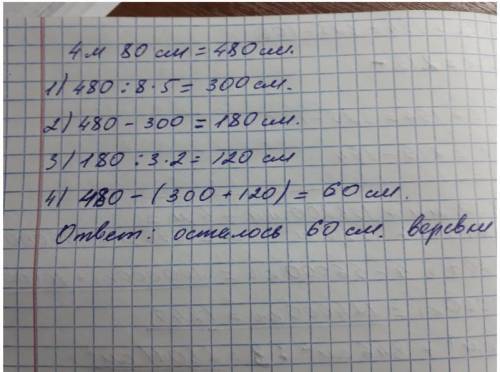 4 м 80 см = 480 см.
1) 480 : 8 · 5 = 300 см.
2) 480 - 300 = 180 см.
3) 180 : 3 · 2 = 120 см
4) 480 - (300 + 120) = 60 см.
Ответ: осталось 60 см. веревки